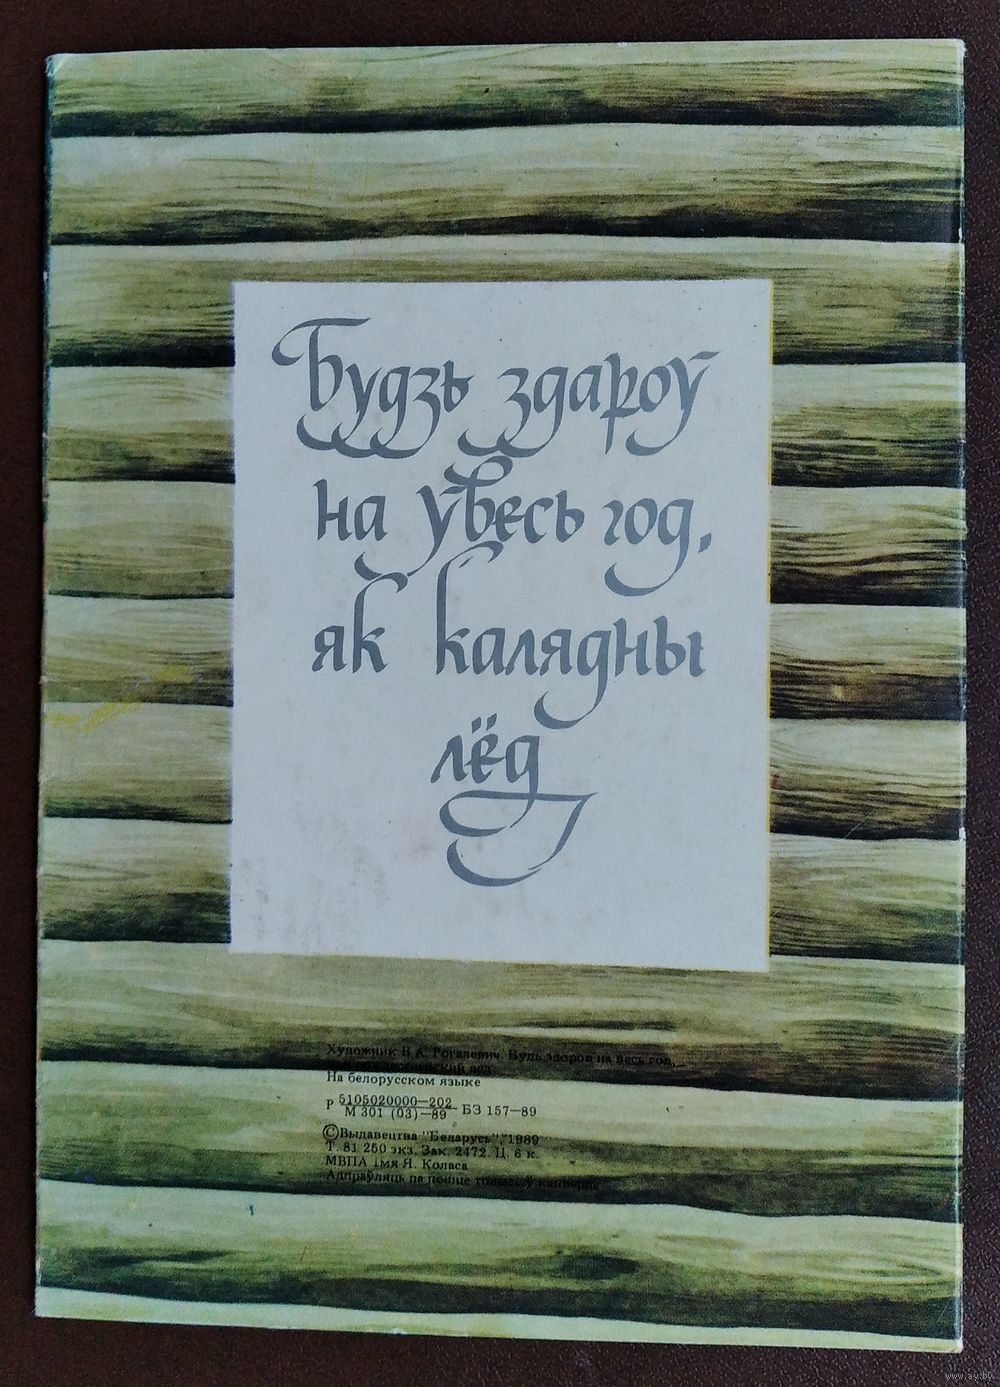 Будзь здароў
на ўвесь год,
як калядны
лёд
Художник В. А. Рогалевич. Будь здоров на весь год,
лед
На белорусском языке
Р 5105020000—202
М 301 (03)—89 БЗ 157—89
©Выдавецтва "Беларусь", 1989
Т. 81 250 экз. Зак. 2472. Ц. 6 к.
МВПА імя Я. Коласа
Адпраўляць па пошце толькі ў канверце
www.ay.by